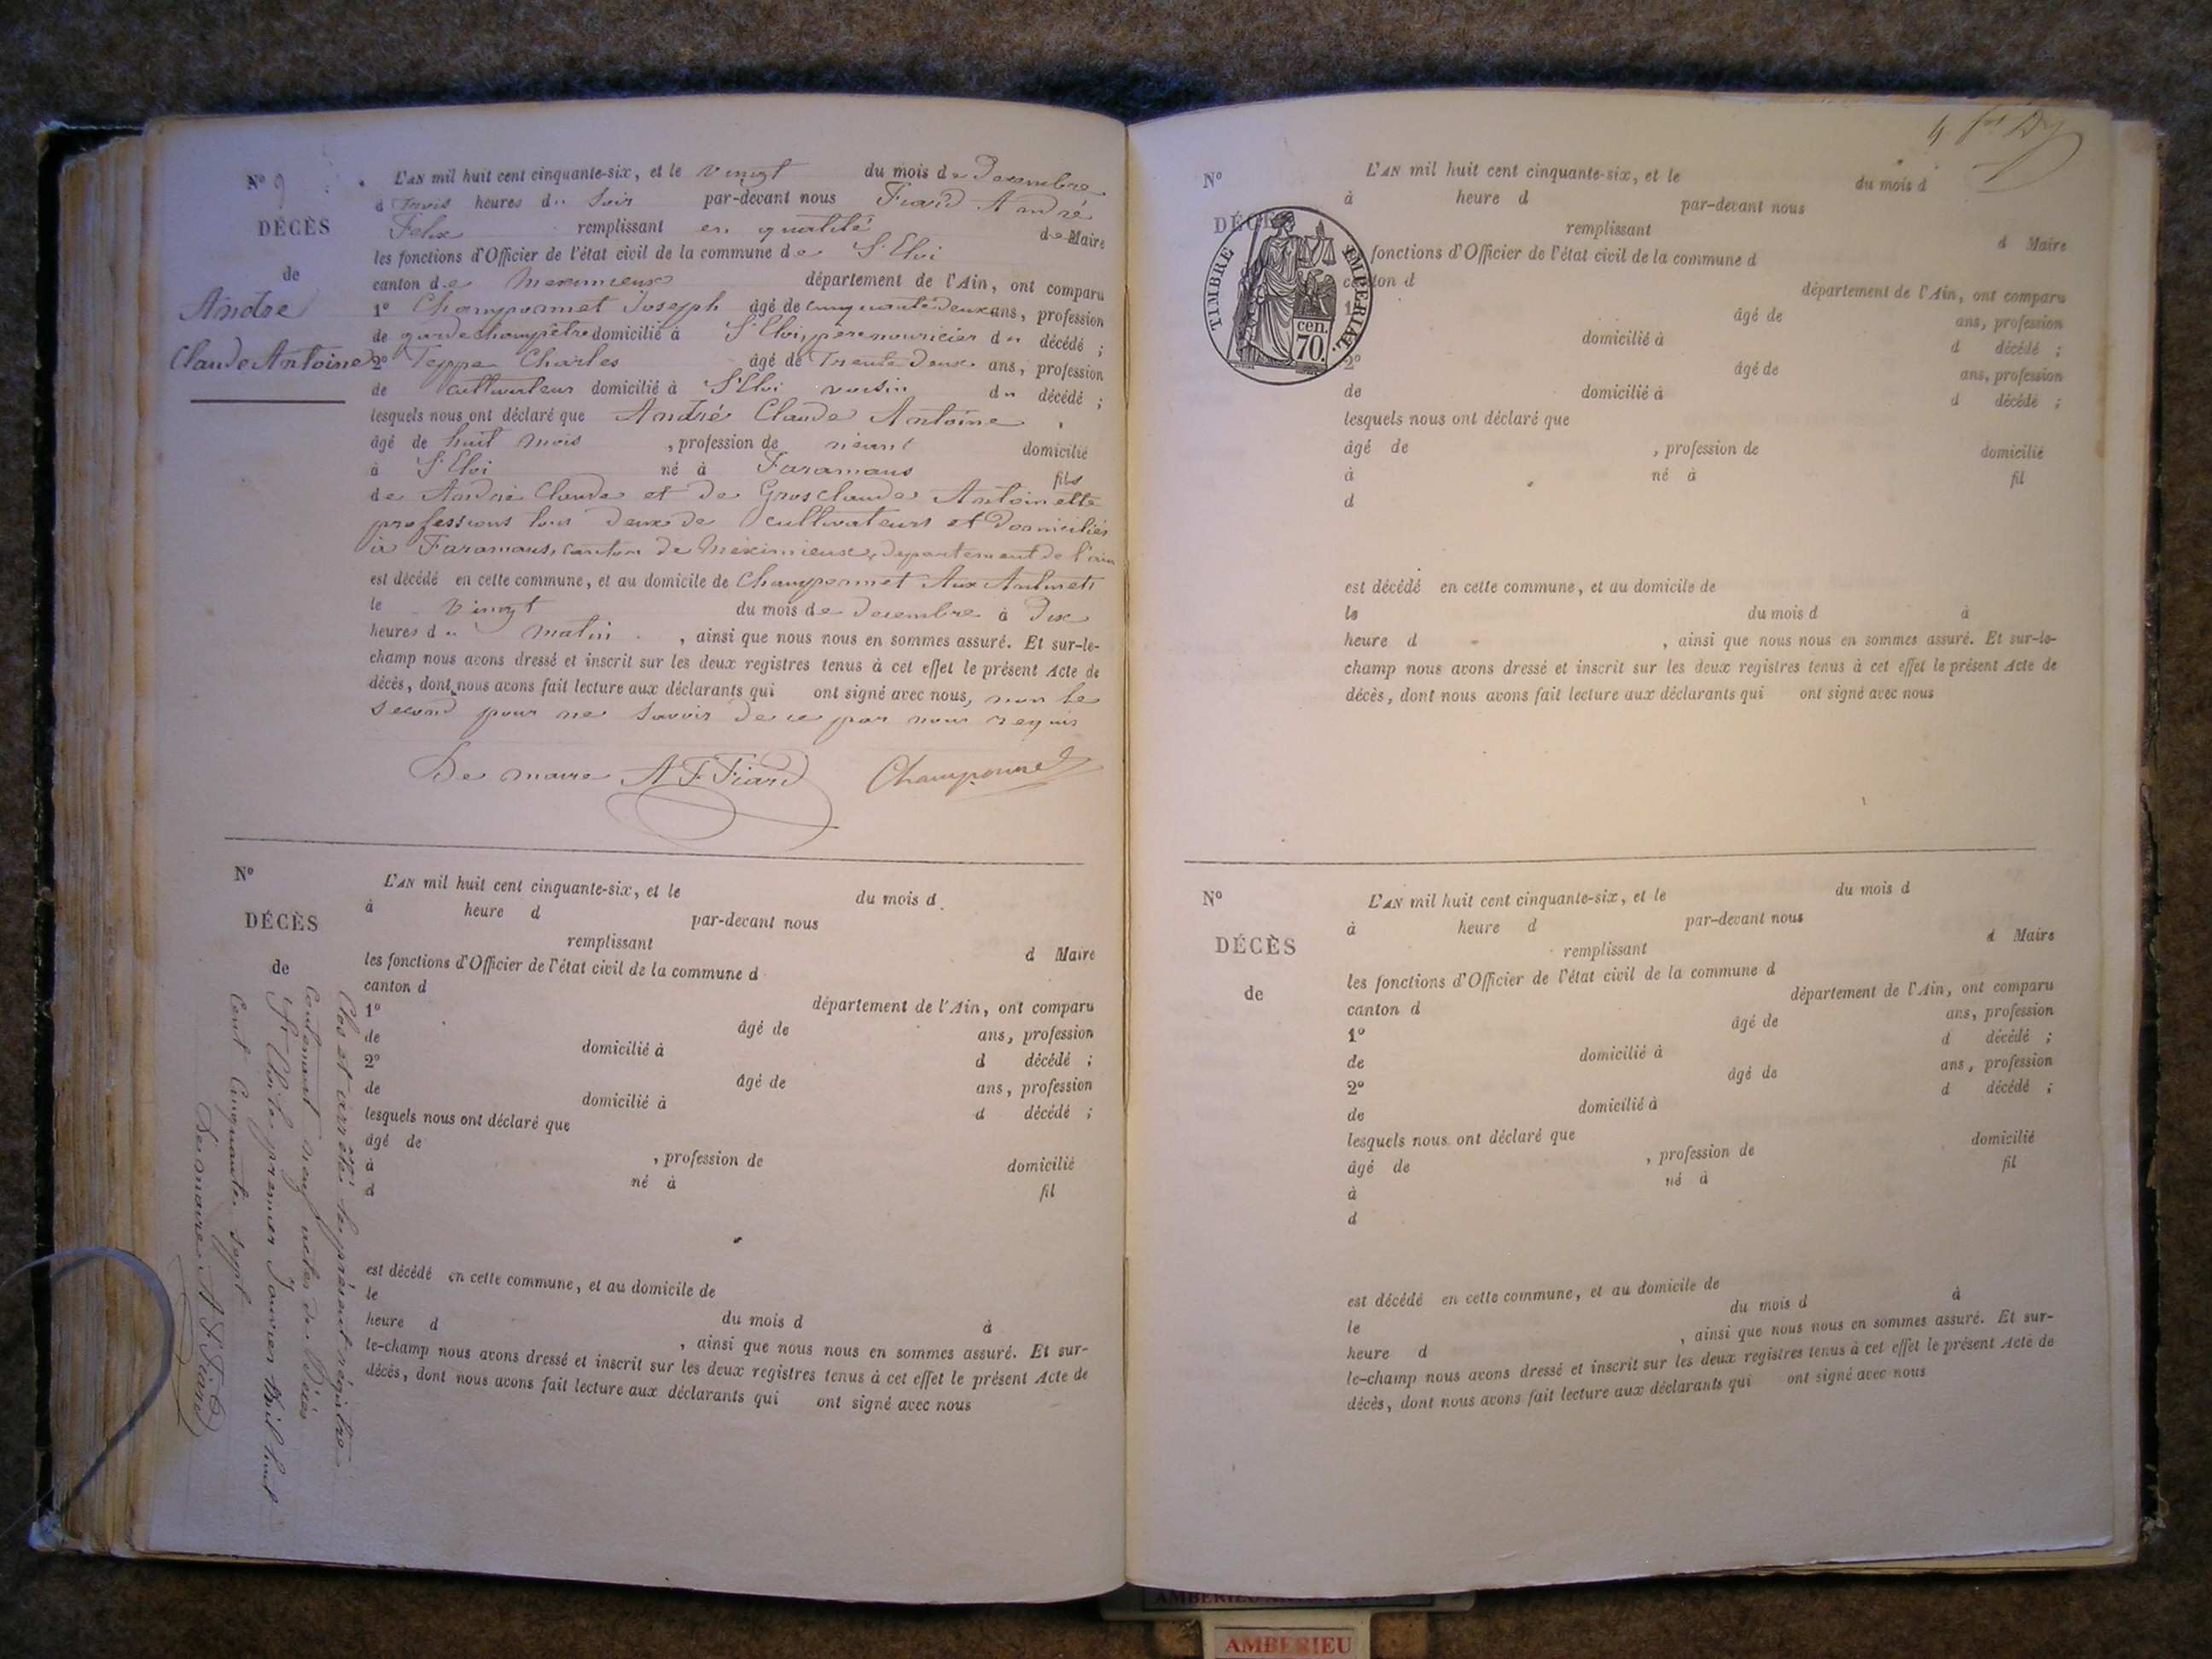 Nº 9
DÉCÈS
de
André
Claude Antoine
L'AN mil huit cent cinquante-six, et le vingt du mois de Decembre
à Trois heures du Soir par-devant nous Fiard André
Felix remplissant en qualité de Maire
les fonctions d'Officier de l'état civil de la commune de St Eloi
canton de Meximieux département de l'Ain, ont comparu
1º Champonnet Joseph âgé de cinquante deux ans, profession
de garde champêtre domicilié à St Eloi, père nouricier du décédé ;
2º Teppe Charles âgé de Trente Deux ans, profession
de cultivateur domicilié à St Eloi voisin du décédé ;
lesquels nous ont déclaré que André Claude Antoine
âgé de huit mois , profession de néant domicilié
à St Eloi né à Faramans fils
de André Claude et de Grosclaude Antoinette
professions tous deux de cultivateurs et Domiciliés
à Faramans, canton de Meximieux, departement de l'ain
est décédé en cette commune, et au domicile de Champonnet Aux
le vingt du mois de Decembre à Dix
heures du matin , ainsi que nous nous en sommes assuré. Et sur-le-
champ nous avons dressé et inscrit sur les deux registres tenus à cet effet le présent Acte de
décès, dont nous avons fait lecture aux déclarants qui ont signé avec nous, non le
second pour ne savoir de ce par nous requis
Le maire A F Fiard Champonnet
Nº
DÉCÈS
de
L'AN mil huit cent cinquante-six, et le du mois d
à heure d par-devant nous
remplissant d Maire
les fonctions d'Officier de l'état civil de la commune d
canton d département de l'Ain, ont comparu
1º âgé de ans, profession
de domicilié à d décédé ;
2º âgé de ans, profession
de domicilié à d décédé ;
lesquels nous ont déclaré que
âgé de , profession de domicilié
à né à fil
d
est décédé en cette commune, et au domicile de
le du mois d à
heure d , ainsi que nous nous en sommes assuré. Et sur-
le-champ nous avons dressé et inscrit sur les deux registres tenus à cet effet le présent Acte de
décès, dont nous avons fait lecture aux déclarants qui ont signé avec nous
Clos et arrêté le présent régistre
Contenant neuf actes de Décès
St Eloi le premier Janvier Mil huit
Cent Cinquante sept
Le maire A F Fiard
Nº
DÉCÈS
TIMBRE IMPERIAL
cen.
70.
L'AN mil huit cent cinquante-six, et le du mois d
à heure d par-devant nous
remplissant d Maire
fonctions d'Officier de l'état civil de la commune d
canton d département de l'Ain, ont comparu
1º âgé de ans, profession
domicilié à d décédé ;
2º âgé de ans, profession
de domicilié à d décédé ;
lesquels nous ont déclaré que
âgé de , profession de domicilié
à né à fil
d
est décédé en cette commune, et au domicile de
le du mois d à
heure d , ainsi que nous nous en sommes assuré. Et sur-le-
champ nous avons dressé et inscrit sur les deux registres tenus à cet effet le présent Acte de
décès, dont nous avons fait lecture aux déclarants qui ont signé avec nous
Nº
DÉCÈS
de
L'AN mil huit cent cinquante-six, et le du mois d
à heure d par-devant nous
remplissant d Maire
les fonctions d'Officier de l'état civil de la commune d
canton d département de l'Ain, ont comparu
1º âgé de ans, profession
de domicilié à d décédé ;
2º âgé de ans, profession
de domicilié à d décédé ;
lesquels nous ont déclaré que
âgé de , profession de domicilié
à né à fil
d
est décédé en cette commune, et au domicile de
le du mois d à
heure d , ainsi que nous nous en sommes assuré. Et sur-
le-champ nous avons dressé et inscrit sur les deux registres tenus à cet effet le présent Acte de
décès, dont nous avons fait lecture aux déclarants qui ont signé avec nous
AMBERIEU
AMBERIEU